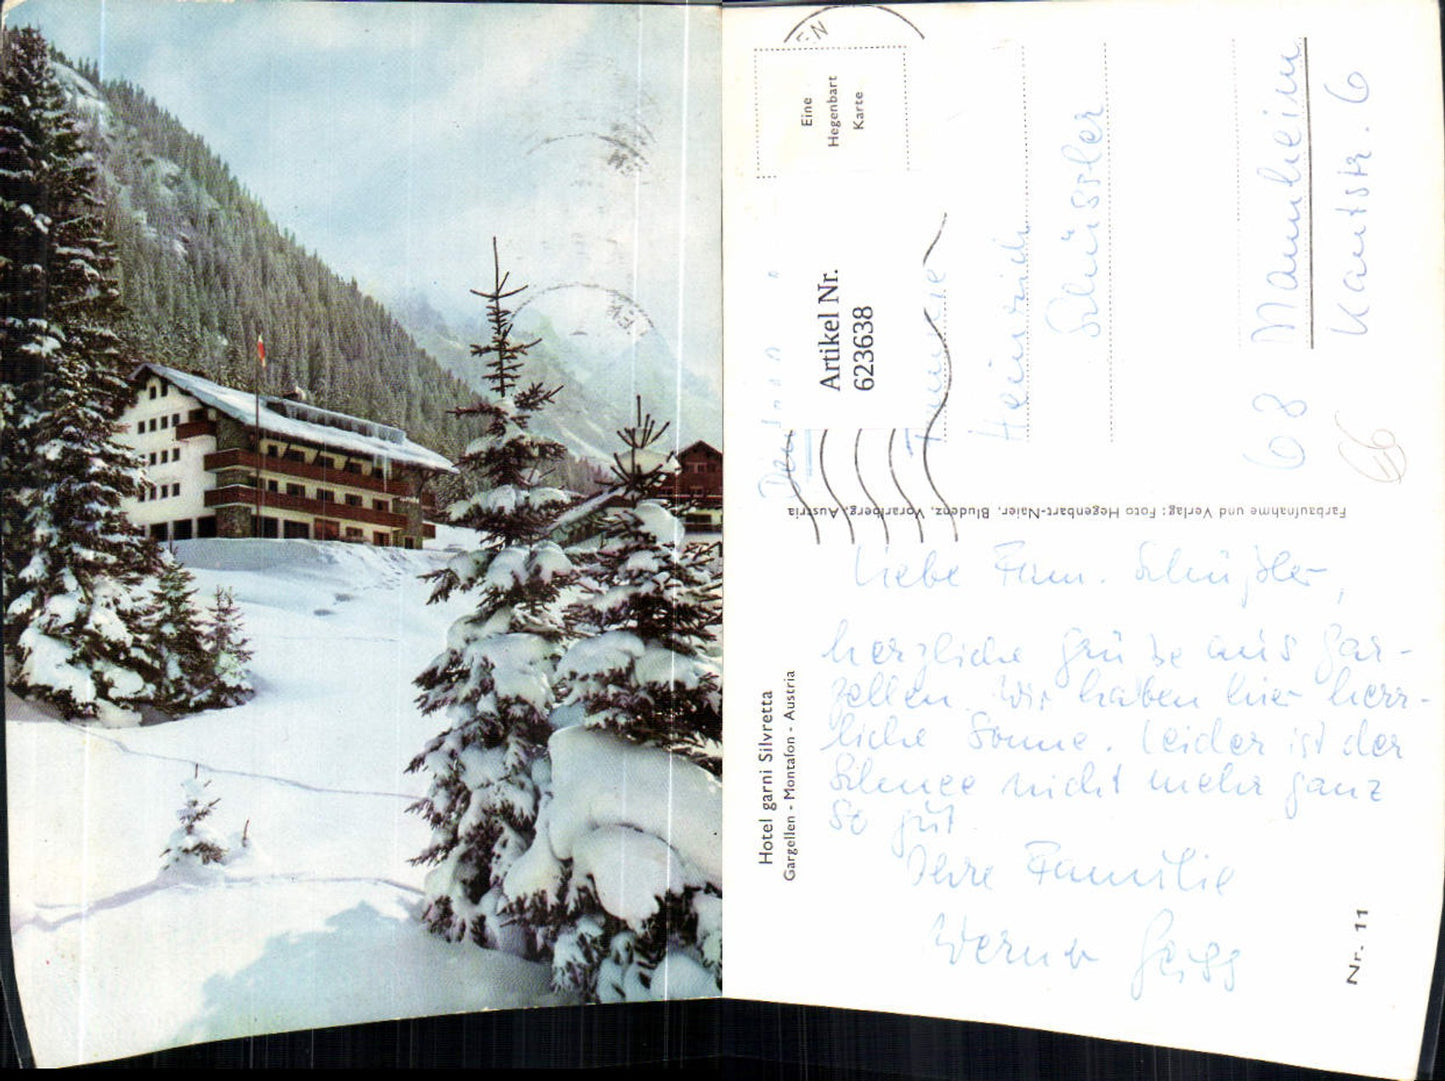 EN
Eine
Hegenbart
Karte
Artikel Nr.
623638
Familie
Heinrich
Schüssler
68 Mannheim
Kantstr. 6
66
Farbaufnahme und Verlag: Foto Hegenbart-Naier, Bludenz, Vorarlberg, Austria
Hotel garni Silvretta
Gargellen - Montafon - Austria
Liebe Fam. Schüßler,
herzliche Grüße aus Gar-
gellen. Wir haben hier herr-
liche Sonne. Leider ist der
Schnee nicht mehr ganz
so gut
Ihre Familie
Werner
Nr. 11